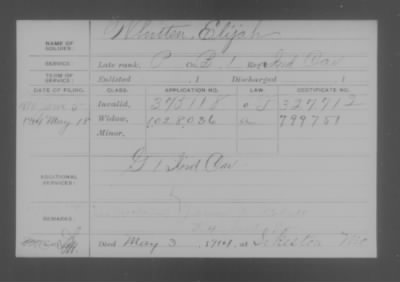 Whitten, Elijah
NAME OF SOLDIER:
SERVICE: Late rank, P Co. B, 1 Reg't Ind Cav
TERM OF SERVICE: Enlisted , 1 Discharged , 1
DATE OF FILING. CLASS. APPLICATION NO. LAW. CERTIFICATE NO.
Invalid, 375118 327712
May 18 Widow, 1028036 799751
Minor,
ADDITIONAL SERVICES: G 1 Ind Cav
REMARKS:
Died May 3, 1914, at Sikeston Mo